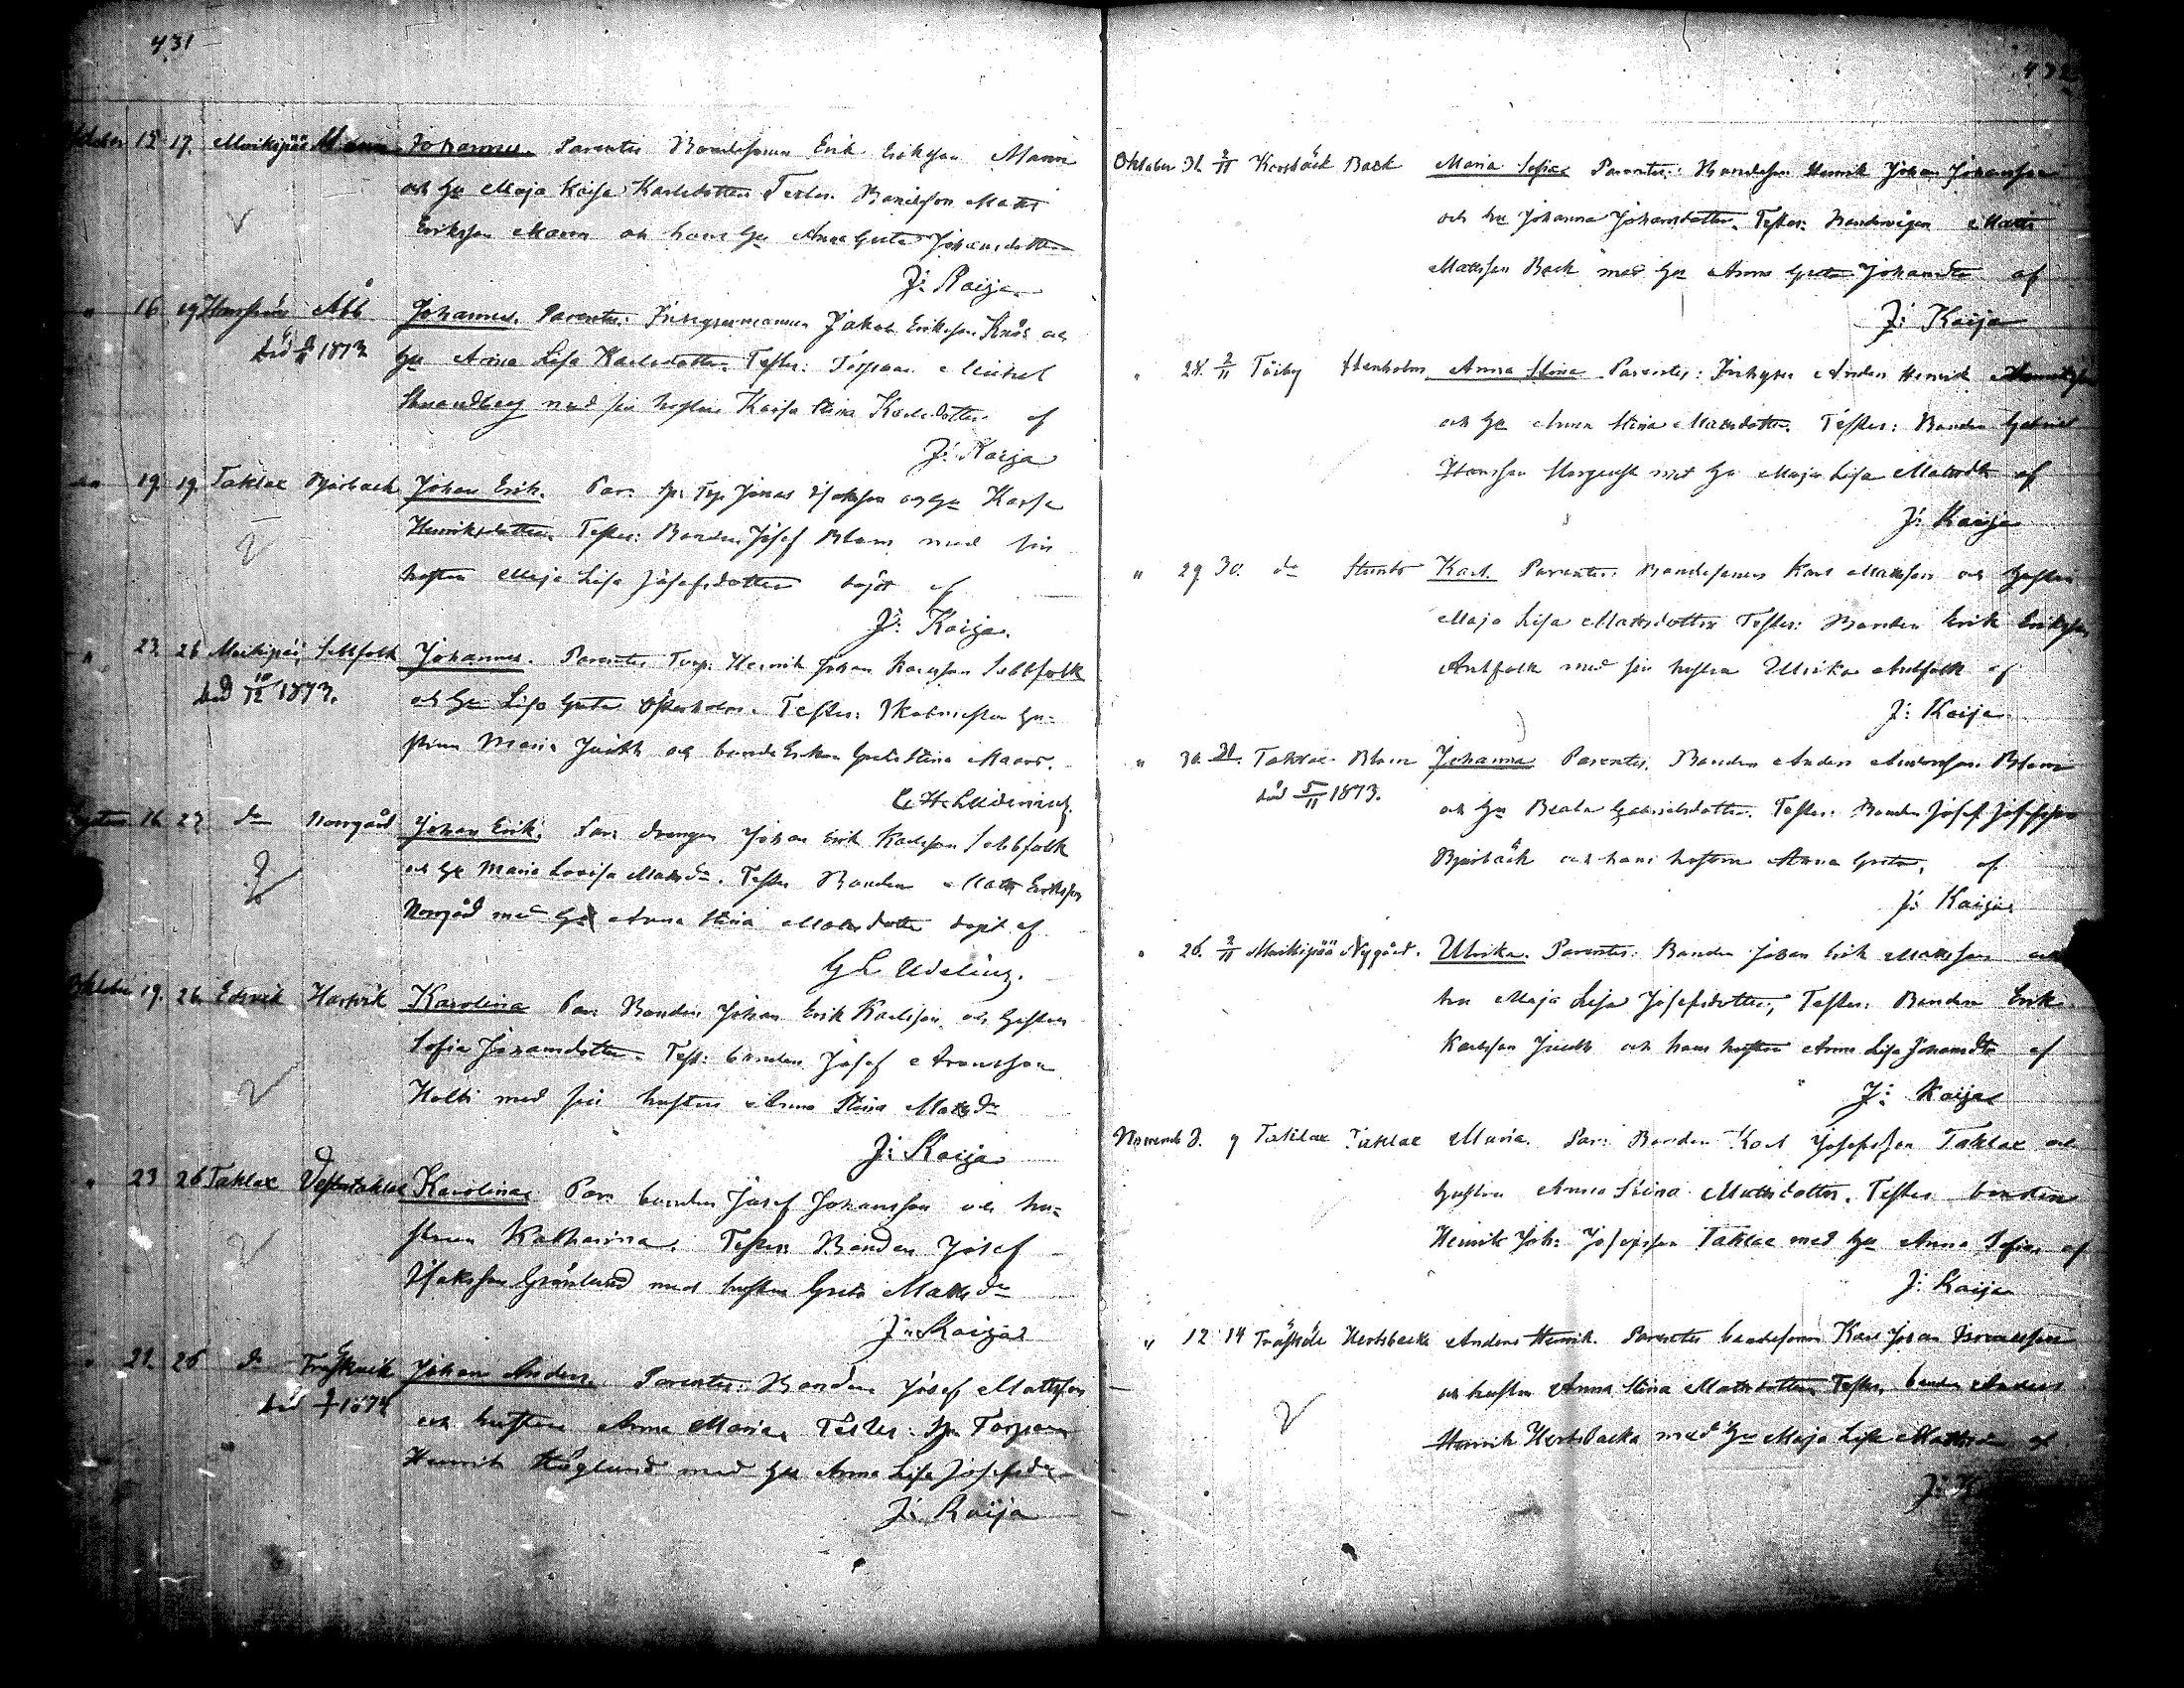 431
Oktober 15 17. Murikipää Mann Johannes. Parentes Bondesonen Erik Eriksson Mann
och Hu Maja Kaisa Karlsdotter Testes. Bondeson Matts
Eriksson Mann och hans Hu Anna Greta Johansdotter
J: Kaija
" 16 19 Abb Johannes. Parentes: Jakob Eriksson Knås och
död 1873 Hu Anna Lisa Karlsdotter. Testes: Torparen Mickel
Strandberg med sin hustru Kaisa Stina Karlsdotter af
J: Kaija
19. 19. Taklax Bjørback Johan Erik. Par: Jonas Isaksson och Hu Kaisa
Henriksdotter. Testes: Bonden Josef Blom med sin
hustru Maja Lisa Josefsdotter döpt af
J: Kaija.
" 23. 26 Murikipää Sebbfolk Johannes. Parentes Torp: Henrik Johan Karlsson Sebbfolk
död 10/12 1873. och Hu Lisa Greta Österholm. Testes: Hu-
strun Maria Juuth och bonde Enkan Greta Stina Mann.
16 27 do Norrgård Johan Erik. Par: drengen Johan Erik Karlsson Sebbfolk
och Hu Maria Lovisa Matsdr. Testes Bonden Matts Eriksson
Norrgård med Hu Anna Stina Matsdotter döpt af
G L Udelius.
Oktober 19. 26. Edsvik Hartvik Karolina Par: Bonden Johan Erik Karlsson och Hustrun
Sofia Johansdotter. Test: bonden Josef Aronsson
Holti med sin hustru Anna Stina Matsdr
J: Kaija
" 23 26 Taklax Vestertaklax Karolina Par: bonden Josef Johansson och hu-
strun Katharina. Testes: Bonden Josef
Isaksson Grönlund med hustru Greta Mattsdr
J: Kaija
" 21. 26 do Träskvik Johan Anders. Parentes: Bonden Josef Mattsson
död 1874 och hustrun Anna Maria. Testes: Torparen
Henrik Höglund med Hu Anna Lisa Josefsdr
J: Kaija
432
Oktober 31. 2/11 Korsbäck Back Maria Sofia Parentes: Bondeson Henrik Johan Johansson
och hu Johanna Johansdotter. Testes: Matts
Mattsson Back med Hu Anna Greta Johansdtr af
J: Kaija
" 28. 2/11 Töjby Stenholm Anna Stina Parentes: Inhyses Anders Henrik
och Hu Anna Stina Matsdotter. Testes: Bonden Gabriel
Hansson med Hu Maja Lisa Matsdtr af
J: Kaija
" 29 30. do Karl. Parentes: Bondesonen Karl Mattsson och Hustrun
Maja Lisa Matsdotter Testes: Bonden Erik Eriksson
Antfolk med sin hustru Ulrika Antfolk af
J: Kaija
" 30. 31. Taklax Blom Johanna Parentes. Bonden Anders Andersson Blom
död 5/11 1873. och Hu Beata Gabrielsdotter. Testes: Bonden Josef Josefsson
Bjørbäck och hans hustru Anna Greta, af
J: Kaija
" 26. 2/11 Murikipää Nygård. Ulrika. Parentes: Bonden Johan Erik Mattsson och
hu Maja Lisa Josefsdotter, Testes: Bonden Erik
Karlsson Juuth och hans hustru Anna Lisa Johansdtr af
J: Kaija
Novemb 8. 9 Taklax Taklax Maria. Par: Bonden Karl Josefsson Taklax och
hustru Anna Stina Mattsdotter. Testes bonden
Henrik Joh: Josefsson Taklax med hu Anna Sofia af
J: Kaija
" 12 14 Träskvik Herbsbacka Anders Henrik. Parentes bondesonen Karl Johan
och hustru Anna Stina Matsdotter. Testes, bonden Anders
Henrik Herbsbacka med Hu Maja Lisa Mattsdr af
J: K